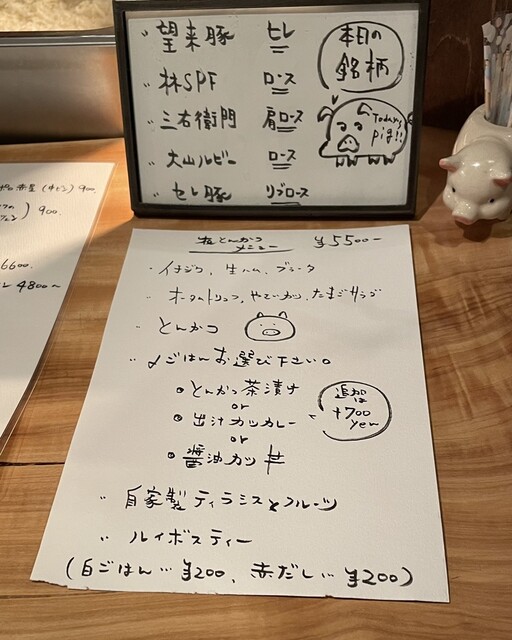 ・望来豚 ヒレ
・林SPF ロース
・三右衛門 肩ロース
・大山ルビー ロース
・セレ豚 リブロース
本日の
銘柄
Today's
pig!!
900.
) 900.
6600.
4800〜
とんかつ
メニュー ¥5500−
・イチジク、生ハム、ブラータ
たまごサラダ
・とんかつ
・〆ごはんお選び下さい。
●とんかつ茶漬け
or
●出汁カツカレー
or
●醤油カツ丼
追加は
+700
yen
・自家製ティラミスとフルーツ
・ルイボスティー
(白ごはん…¥200、赤だし…¥200)